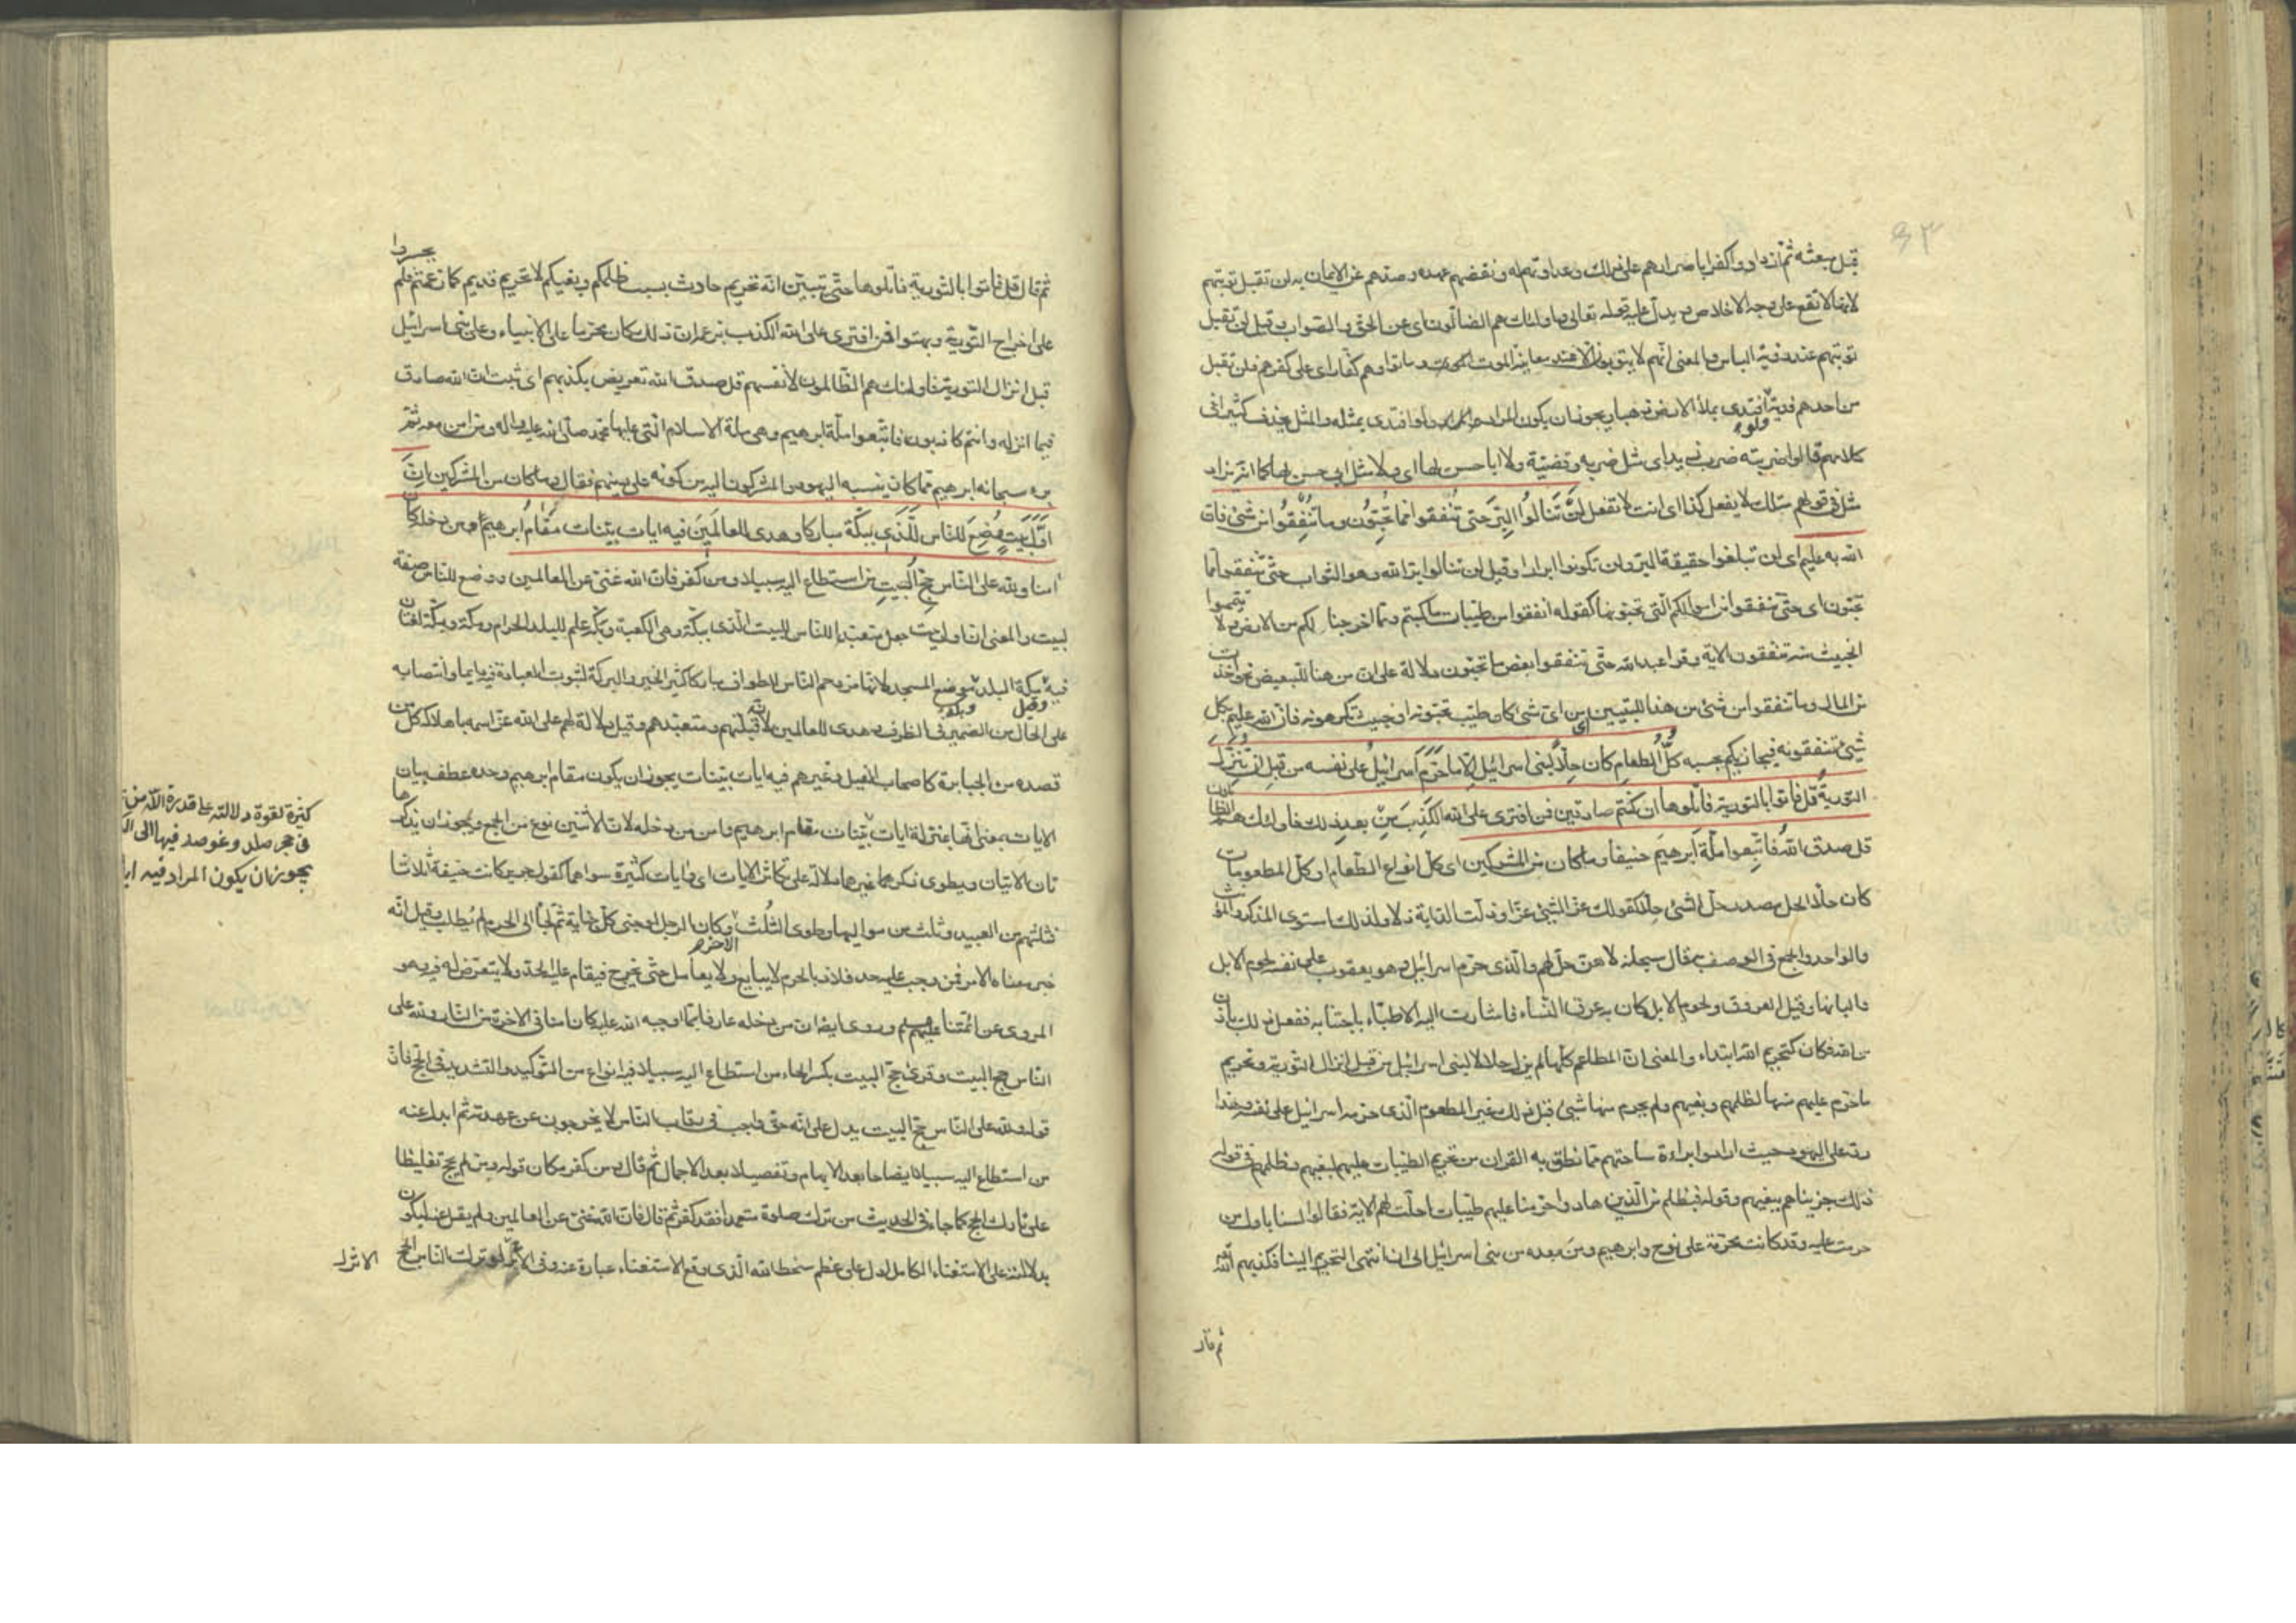 ٩٣
قبل مبعثه ثم ازدادوا كفرا باصرارهم على ذلك وعداوتهم له ونقضهم عهده وصدهم عن الايمان به لن تقبل توبتهم
لانها لا تقع على وجه الاخلاص ويدل عليه قوله تعالى واولئك هم الضالون اى عن الحق والصواب وقيل لن تقبل
توبتهم عند رؤية الباس والمعنى انهم لا يتوبون الا عند معاينة الموت وماتوا وهم كفار اى على كفرهم فلن تقبل
من احدهم فدية ولو افتدى بملأ الارض ذهبا ويجوز ان يكون المراد ولو افتدى بمثله والمثل يحذف كثيرا فى
كلامهم قالوا ضربته ضرب زيد اى مثل ضربه وقضيّة ولا ابا حسن لها اى ولا مثل ابى حسن لها كما انه يزاد
مثل فى قولهم مثلك لا يفعل كذا اى انت لا تفعل لَنْ تَنالُوا البِرَّ حتى تُنفقوا مما تُحِبّون وما تُنْفِقُوا من شئ فان
الله به عليم اى لن تبلغوا حقيقة البر ولن تكونوا ابرارا وقيل لن تنالوا بر الله وهو الثواب حتى تنفقوا مما
تحبون اى حتى تنفقوا من اموالكم التى تحبونها كقوله انفقوا من طيبات ما كسبتم ومما اخرجنا لكم من الارض ولا تيمموا
الخبيث منه تنفقون الاية وقرا عبد الله حتى تنفقوا بعض ما تحبون دلالة على ان من هنا للتبعيض نحو اخذت
من المال وما تنفقوا من شئ من هنا للتبيين اى من اى شئ كان طيب تحبونه او خبيث تكرهونه فان الله عليم بكل
شئ تنفقونه فيجازيكم بحسبه كلُّ الطعامِ كان حِلّاً لبنى اسرائيل الا ما حرّم اسرائيلُ على نفسه من قبل ان تُنزّل
التوريةُ قل فأتوا بالتورية فاتلوها ان كنتم صادقين فمن افترى على الله الكَذِبَ مِن بعد ذلك فاولئك هم الظالمون
قل صدق الله فاتبعوا ملّة ابرهيمَ حنيفا وما كان من المشركين اى كل انواع الطعام او كل المطعومات
كان حلا الحل مصدر حل الشئ حلا كقولك عز الشئ عزا وذلت الدابة ذلا ولذلك استوى المذكر والمؤنث
والواحد والجمع فى الوصف به قال سبحانه لا هن حل لهم والذى حرم اسرائيل وهو يعقوب على نفسه لحوم الابل
والبانها وقيل العروق ولحوم الابل كان به عرق النساء فاشارت اليه الاطباء باجتنابه ففعل ذلك باذن
من الله فكان كتحريم الله ابتداء والمعنى ان المطاعم كلها لم يزل حلالا لبنى اسرائيل من قبل انزال التورية وتحريم
ما حرم عليهم منها لظلمهم وبغيهم ولم يحرم منها شئ قبل ذلك غير المطعوم الذى حرمه اسرائيل على نفسه وهذا
رد على اليهود حيث ارادوا براءة ساحتهم مما نطق به القران من تحريم الطيبات عليهم لبغيهم وظلمهم فى قوله
ذلك جزيناهم ببغيهم وقوله فبظلم من الذين هادوا حرمنا عليهم طيبات احلت لهم الاية فقالوا لسنا باول من
حرمت عليه وقد كانت محرمة على نوح وابرهيم ومن بعده من بنى اسرائيل الى ان انتهى التحريم الينا فكذبهم الله
ثم قال
ثم قال قل فأتوا بالتورية فاتلوها حتى تبين انه تحريم حادث بسبب ظلمكم وبغيكم لا تحريم قديم كما زعمتم فلم يجسروا
على اخراج التورية وبهتوا فمن افترى على الله الكذب بزعمه ان ذلك كان محرما على الانبياء وعلى بنى اسرائيل
قبل انزال التورية فاولئك هم الظالمون لانفسهم قل صدق الله تعريض بكذبهم اى ثبت ان الله صادق
فيما انزله وانتم كاذبون فاتبعوا ملة ابرهيم وهى ملة الاسلام التى عليها محمد صلى الله عليه واله ومن امن معه ثم
برء سبحانه ابرهيم مما كان ينسبه اليهود والمشركون اليه من كونه على دينهم فقال وما كان من المشركين اِنّ
اوّلَ بَيتٍ وُضِعَ للناس لَلّذى بِبكّة مباركا وهدى للعالمين فيه ايات بيّنات مَقامُ ابرهيم ومن دخله كان
امنا ولله على الناس حِجّ البيت من استطاع اليه سبيلا ومن كفر فان الله غنى عن العالمين وضع للناس صفة
لبيت والمعنى ان اول بيت جعل متعبدا للناس للبيت الذى ببكة وهى الكعبة وبكة علم للبلد الحرام ومكة وبكة لغتان
فيه وقيل مكة البلد وبكة موضع المسجد لانها مزدحم الناس للطواف مباركا كثير الخير والبركة لثبوت العبادة فيه دايما وانتصابه
على الحال من الضمير فى الظرف وهدى للعالمين لانه قبلتهم ومتعبدهم وقيل دلالة لهم على الله عز اسمه باهلاكه كل من
قصده من الجبابرة كاصحاب الفيل وغيرهم فيه ايات بينات يجوز ان يكون مقام ابرهيم وحده عطف بيان
الايات بمعنى انها بمنزلة ايات بينات مقام ابرهيم وامن من دخله لان الاثنين نوع من الجمع ويجوز ان يذكرها
تان الايتان ويطوى ذكر غيرهما دلالة على تكاثر الايات اى وايات كثيرة سواهما كقول جرير كانت حنيفة اثلاثا
فثلثهم من العبيد وثلث من مواليها وطوى الثلث الاخر وكان الرجل لو جنى كل جناية ثم لجأ الى الحرم لم يُطلب وقيل انه
خبر معناه الامر فمن وجب عليه حد فلاذ بالحرم لا يبايع ولا يعامل حتى يخرج فيقام عليه الحد ولا يتعرض له فيه وهو
المروى عن ائمتنا عليهم السلم وروى ايضا ان من دخله عارفا بما اوجبه الله عليه كان امنا فى الاخرة من النار ولله على
الناس حج البيت وقرئ حج البيت بكسر الحاء من استطاع اليه سبيلا فيه انواع من التوكيد والتشديد فى الحج فان
قوله ولله على الناس حج البيت يدل على انه حق واجب فى رقاب الناس لا يخرجون عن عهدته ثم ابدل عنه
من استطاع اليه سبيلا ايضاحا بعد الابهام وتفصيلا بعد الاجمال ثم قال ومن كفر مكان قوله ومن لم يحج تغليظا
على تارك الحج كما جاء فى الحديث من ترك صلوة متعمدا فقد كفر ثم قال فان الله غنى عن العالمين ولم يقل عنه ليكون
بدلالته على الاستغناء الكامل ادل على عظم سخط الله الذى وقع الاستغناء عبارة عنه وفى الاثر لو ترك الناس الحج
كثيرة لقوة دلالته على قدرة الله من
فى حجر صلد وغوصه فيها الى
يجوز ان يكون المراد فيه